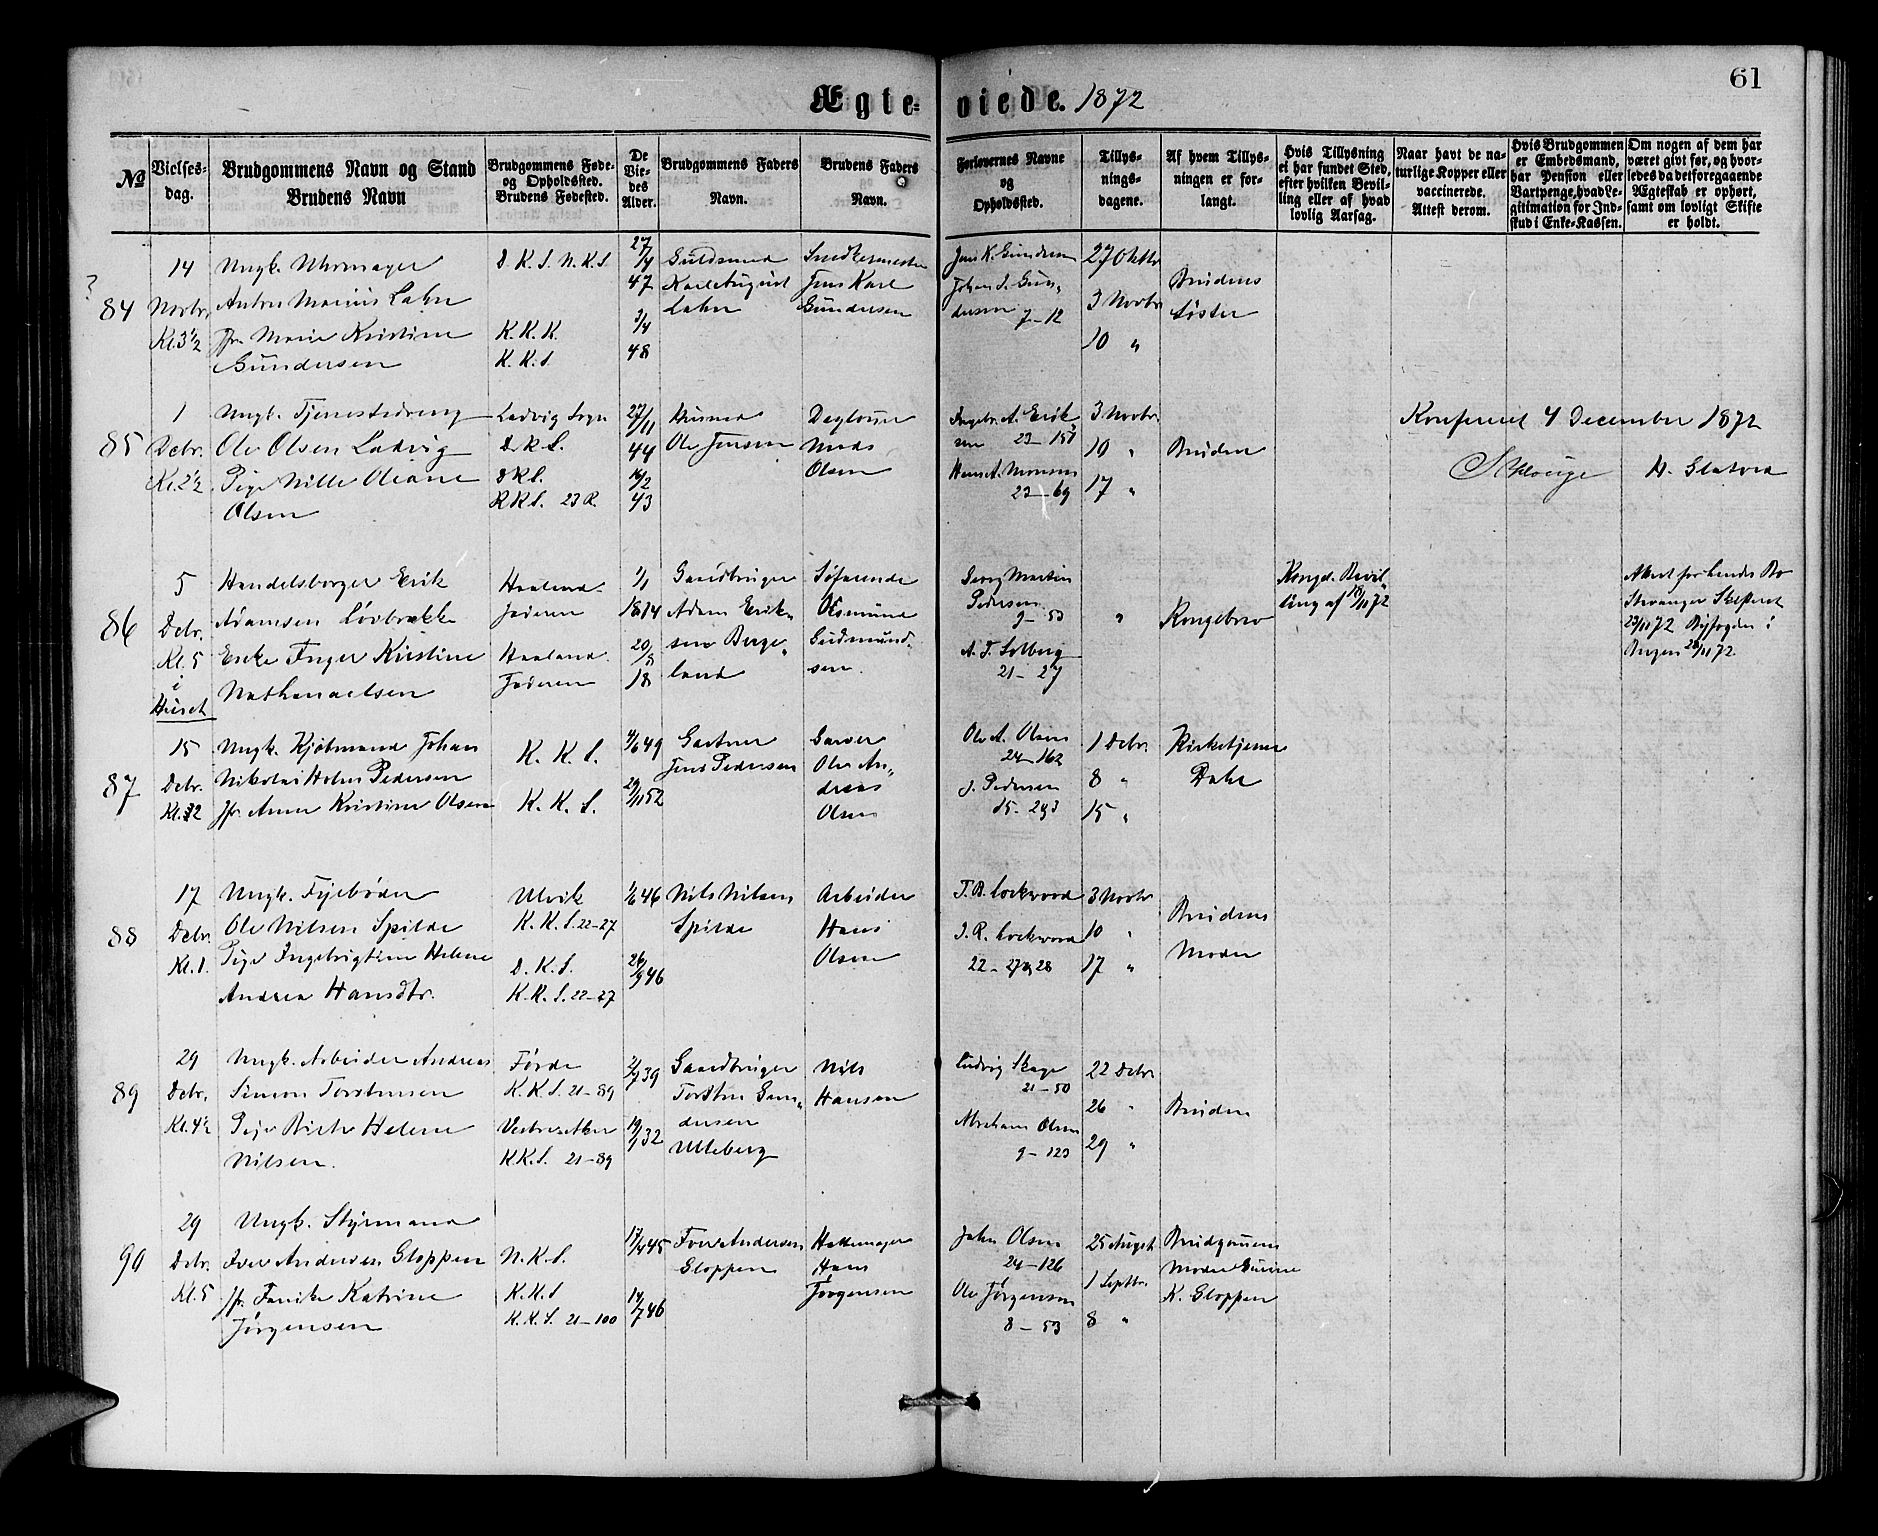 61
Ægte- viede. 1872
№
Vielses-
dag.
Brudgommens Navn og Stand
Brudens Navn
Brudgommens Føde-
og Opholdssted.
Brudens Fødested.
De
Vie-
des
Alder.
Brudgommens Faders
Navn.
Brudens Faders
Navn.
Forlovernes Navne
og
Opholdssted.
Tillys-
nings-
dagene.
Af hvem Tillys-
ningen er for-
langt.
Hvis Tillysning
ei har fundet Sted,
efter hvilken Bevil-
ling eller af hvad
lovlig Aarsag.
Naar havt de na-
turlige Kopper eller
vaccinerede.
Attest derom.
Hvis Brudgommen
er Embedsmand,
har Pension eller
Vartpenge, hvad Le-
gitimation for Ind-
skud i Enke-Kassen.
Om nogen af dem har
været givt før, og hvor-
ledes da det foregaaende
Ægteskab er ophørt,
samt om lovligt Skifte
er holdt.
?
84
14
Novbr.
Kl. 3½
Ungk. Uhrmager
Anton Marius Lahn
Jfr. Marie Kristine
Gundersen
D. K. S. N. K. S
K. K. K.
K. K. S
27/4
47
3/4
48
Guldsmed
Karl August
Lahn
Snedkermester
Jens Karl
Gundersen
Jens K. Gundersen
Johan S. Gun-
dersen 7-12
27 Oktbr
3 Novbr
10 "
Brudens
Søster
85
1
Decbr.
Kl. 2½
Ungk. Tjenestedreng
Ole Olsen Ladvig
Pige Nille Oliane
Olsen
Ladvig Sogn
D. K. S.
D K S.
K K S. 23 R.
27/11
44
16/2
43
Husmd
Ole Jensen
Daglønner
Mads
Olsen
Ingebr. A. Erik-
sen 23-151
Hans A. Monsen
23-69
3 Novbr.
10 "
17 "
Bruden
Konfereret 4 December 1872
86
5
Decbr.
Kl. 5
i
Huset
Handelsborger Erik
Adamsen Løvbrække
Enke Inger Kristine
Nathanaelsen
Haaland
Jæderen
Haaland
Jæderen
1/1
1814
20/8
18
Gaardbruger
Adam Erik-
sen Berge-
land
Søfarende
Osmund
Gudmund-
sen.
Georg Martin
Pedersen
9-53
A. T. Solberg
21-27
"
Kongebrev
Kongel. Bevil-
ling af 15/11 72
Attest for hendes Bo
Stavanger Skifteret
23/11 72 Byfogden i
Bergen 28/11 72.
87
15
Decbr.
Kl. 32
Ungk. Kjøbmand Johan
Nikolai Holm Pedersen
Jfr. Anne Kristine Olsen
K. K. S.
K. K. S.
4/6 49
29/11 52
Gartner
Jens Pedersen
Garver
Ole An-
dreas
Olsen
Ole A. Olsen
24-162
J. Pedersen
15-293
1 Decbr.
8 "
15 "
Kirketjener
Dahl
88
17
Decbr.
Kl. 1.
Ungk. Fyrbøder
Ole Nilsen Spilde
Pige Ingebrigtine Helene
Andrea Hansdtr.
Ulvik
K. K. S. 22-27
D. K. S.
K. K. S. 22-27
1/6 46
26/9 46
Nils Nilsen
Spilde
Arbeider
Hans
Olsen
T. B. Lockwood
J. R. Lockwood
22-27 og 28
3 Novbr
10 "
17 "
Brudens
Moder
89
29
Decbr.
Kl. 4½
Ungk. Arbeider Andreas
Simon Torstensen
Pige Birte Helene
Nilsen.
Førde
K. K. S. 21-89
Vestre Aker
K K. S. 21-89
2/7 39
19/1 32
Gaardbruger
Torsten Gun-
dersen
Ulleberg
Nils
Hansen
Ludvig Skage
21-50
Abraham Olsen
9-123
22 Decbr.
26 "
29 "
Bruden
90
29
Decbr.
Kl. 5
Ungk. Styrmand
Iver Andersen Gloppen
Jfr. Fanike Katrine
Jørgensen
N. K. S.
K. K. S
K. K. S. 21-100
17/4 45
14/7 46
Iver Andersen
Gloppen
Hattemager
Hans
Jørgensen
John Olsen
24-126
Ole Jørgensen
8-53
25 August
1 Septbr.
8 "
Brudgommens
Moder
K. Gloppen